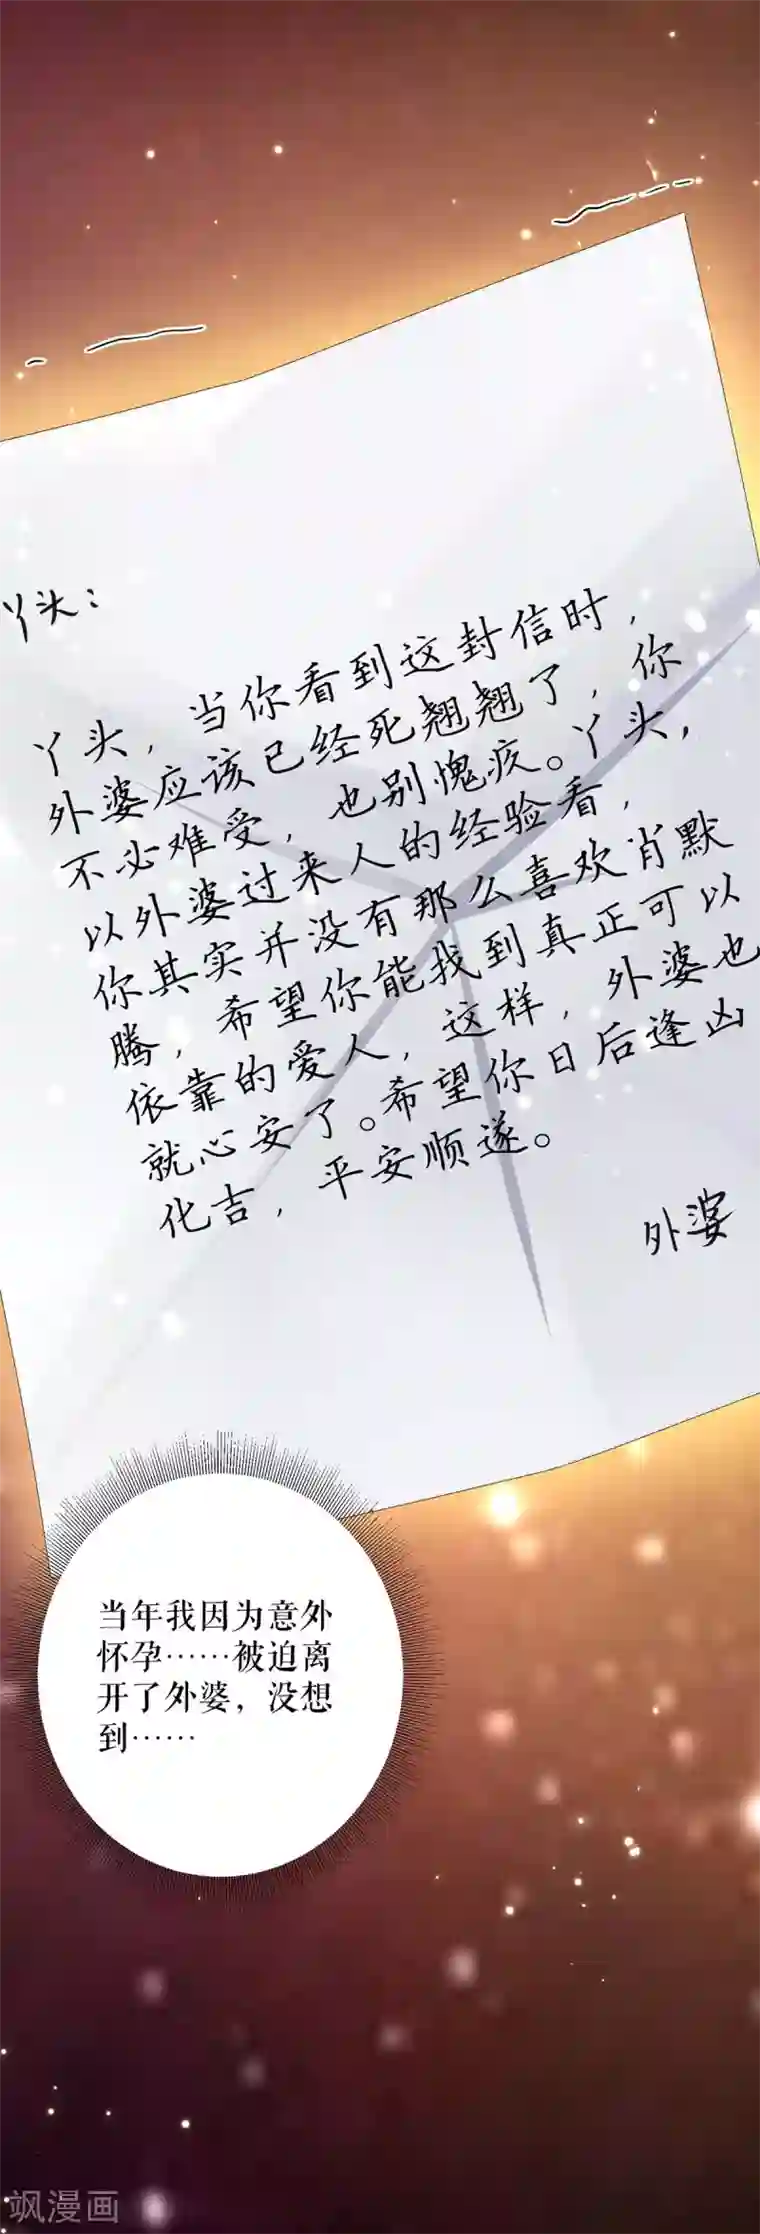 丫头：
丫头，当你看到这封信时，
外婆应该已经死翘翘了，你
不必难受，也别愧疚。丫头，
以外婆过来人的经验看，
你其实并没有那么喜欢肖默
腾，希望你能找到真正可以
依靠的爱人，这样，外婆也
就心安了。希望你日后逢凶
化吉，平安顺遂。
外婆
当年我因为意外
怀孕……被迫离
开了外婆，没想
到……
飒漫画